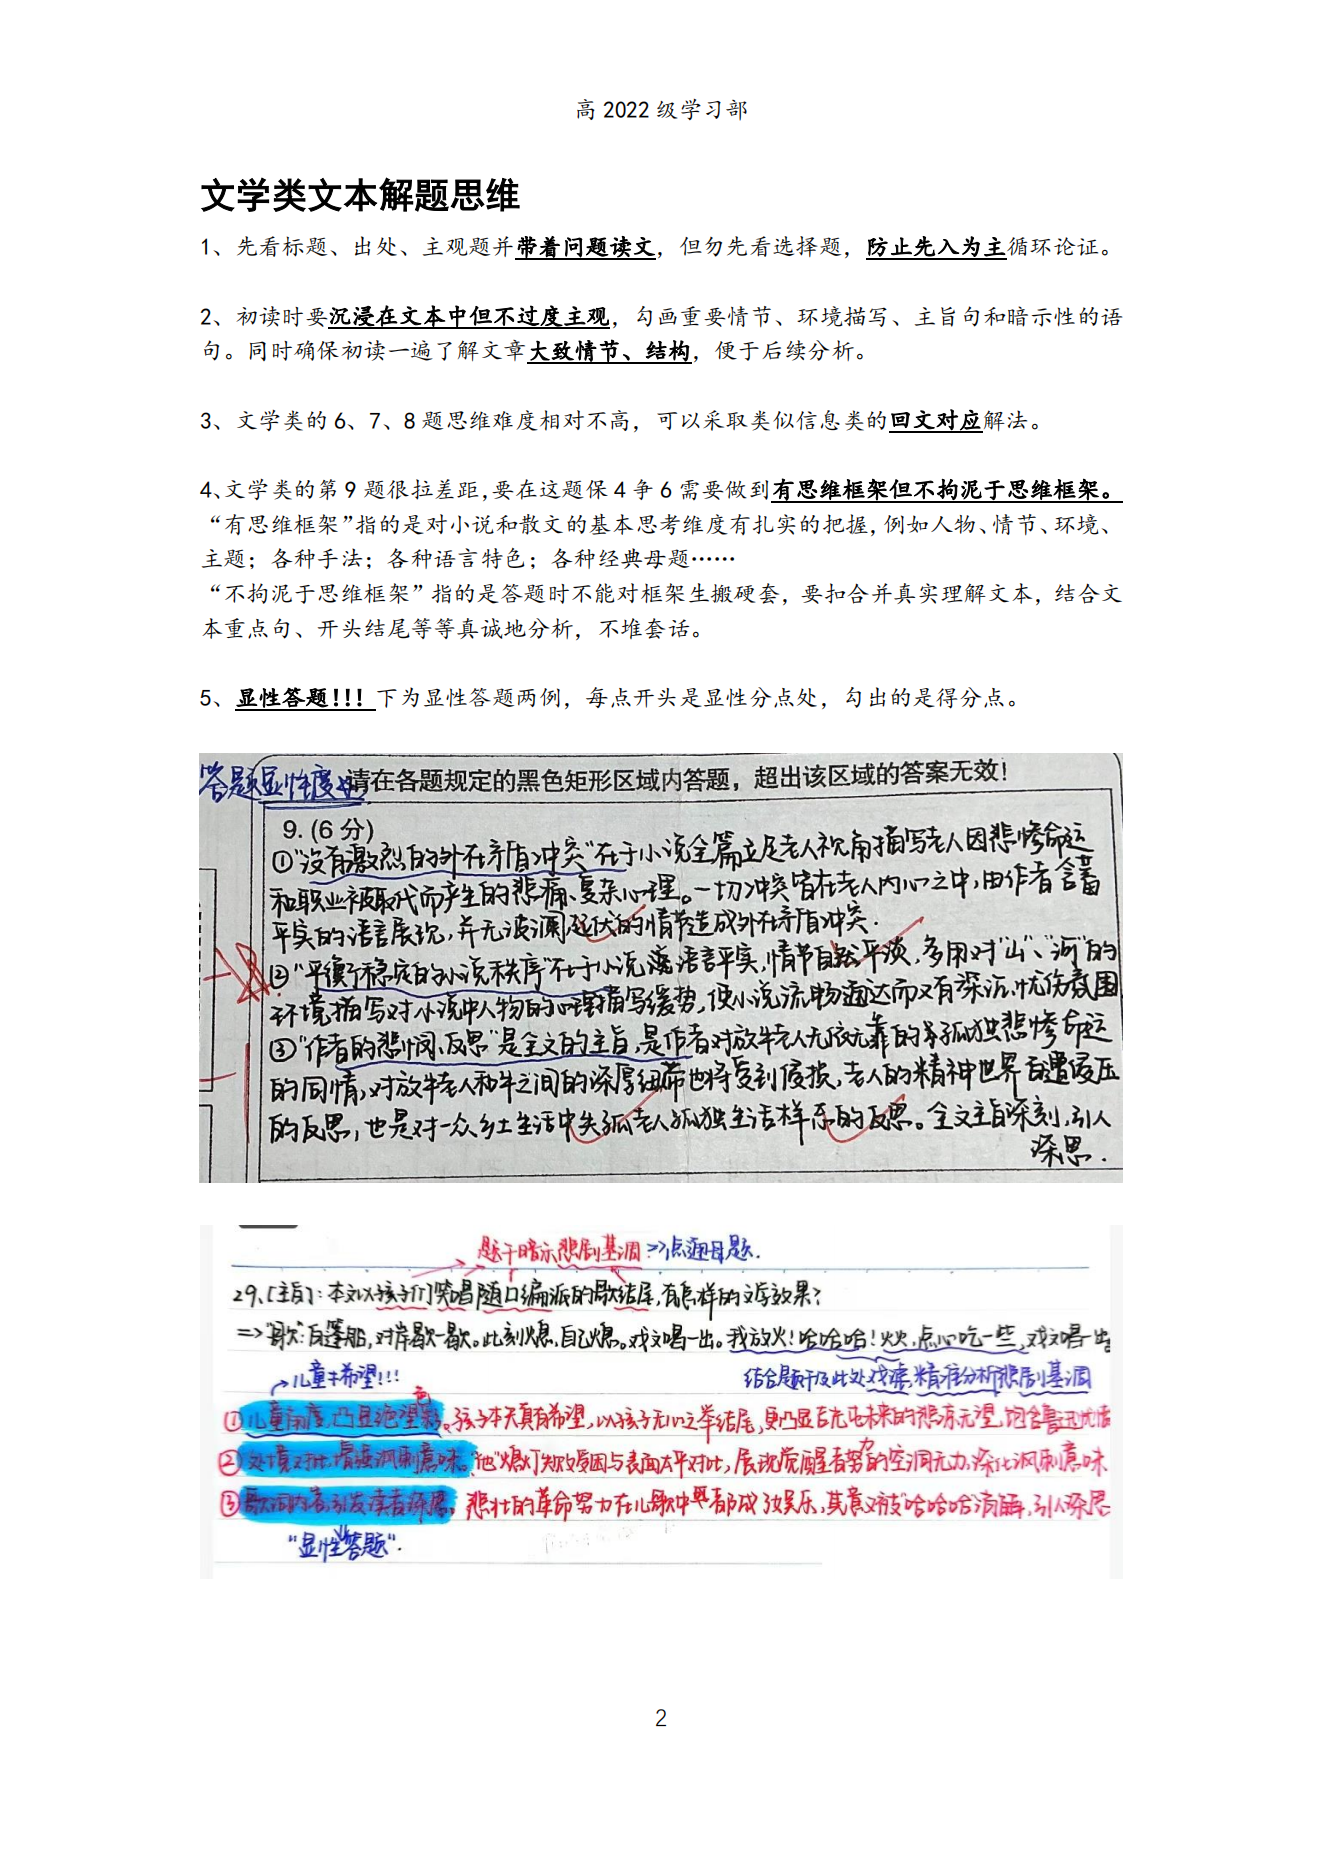 高 2022 级学习部
文学类文本解题思维
1、先看标题、出处、主观题并带着问题读文，但勿先看选择题，防止先入为主循环论证。
2、初读时要沉浸在文本中但不过度主观，勾画重要情节、环境描写、主旨句和暗示性的语
句。同时确保初读一遍了解文章大致情节、结构，便于后续分析。
3、文学类的 6、7、8 题思维难度相对不高，可以采取类似信息类的回文对应解法。
4、文学类的第 9 题很拉差距，要在这题保 4 争 6 需要做到有思维框架但不拘泥于思维框架。
“有思维框架”指的是对小说和散文的基本思考维度有扎实的把握，例如人物、情节、环境、
主题；各种手法；各种语言特色；各种经典母题……
“不拘泥于思维框架”指的是答题时不能对框架生搬硬套，要扣合并真实理解文本，结合文
本重点句、开头结尾等等真诚地分析，不堆套话。
5、显性答题！！！下为显性答题两例，每点开头是显性分点处，勾出的是得分点。
答题显性度
请在各题规定的黑色矩形区域内答题，超出该区域的答案无效！
9. (6 分)
①“没有激烈的外在矛盾冲突”在于小说全篇立足老人视角描写老人因悲惨命运
和职业被取代而产生的悲痛、复杂心理。一切冲突皆在老人内心之中，由作者含蓄
平实的语言展现，并无波澜起伏的情节造成外在矛盾冲突.
②“平衡稳定的小说秩序”在于小说语言平实，情节自然平淡，多用对“山”、“河”的
环境描写对小说中人物的心理描写缓势，使小说流畅通达而又有深沉忧伤氛围
③“作者的悲悯、反思”是全文的主旨，是作者对放牛老人无依无靠的孤独悲惨命运
的同情，对放牛老人和牛之间的深厚纽带也将受到侵损，老人的精神世界自遭侵压
的反思，也是对一众乡土生活中失孤老人孤独生活样态的反思。全文主旨深刻，引人
深思.
题干暗示悲剧基调 => 点通母题.
29、[主旨]：本文以孩子们笑唱随口编派的歌结尾，有怎样的文学效果？
=>“歌”：白篷船，对岸歇一歇。此刻熄，自己熄。戏文唱一出。我放火！哈哈哈！火火火，点心吃一些，戏文唱一出
儿童=希望!!!
结合题干及此处戏谑，精准分析悲剧基调
①儿童角度，凸显绝望色彩。孩子本天真有希望，以孩子无心之举结尾，更凸显
②处境对比，增强讽刺意味。“他”熄灯失败受困与表面太平对比，展现觉醒者努力的空洞无力，深化讽刺意味
③歌词内容，引发读者深思。悲壮的革命努力在儿歌中，其意义被“哈哈哈”消解，引人深思
“显性答题”.
2